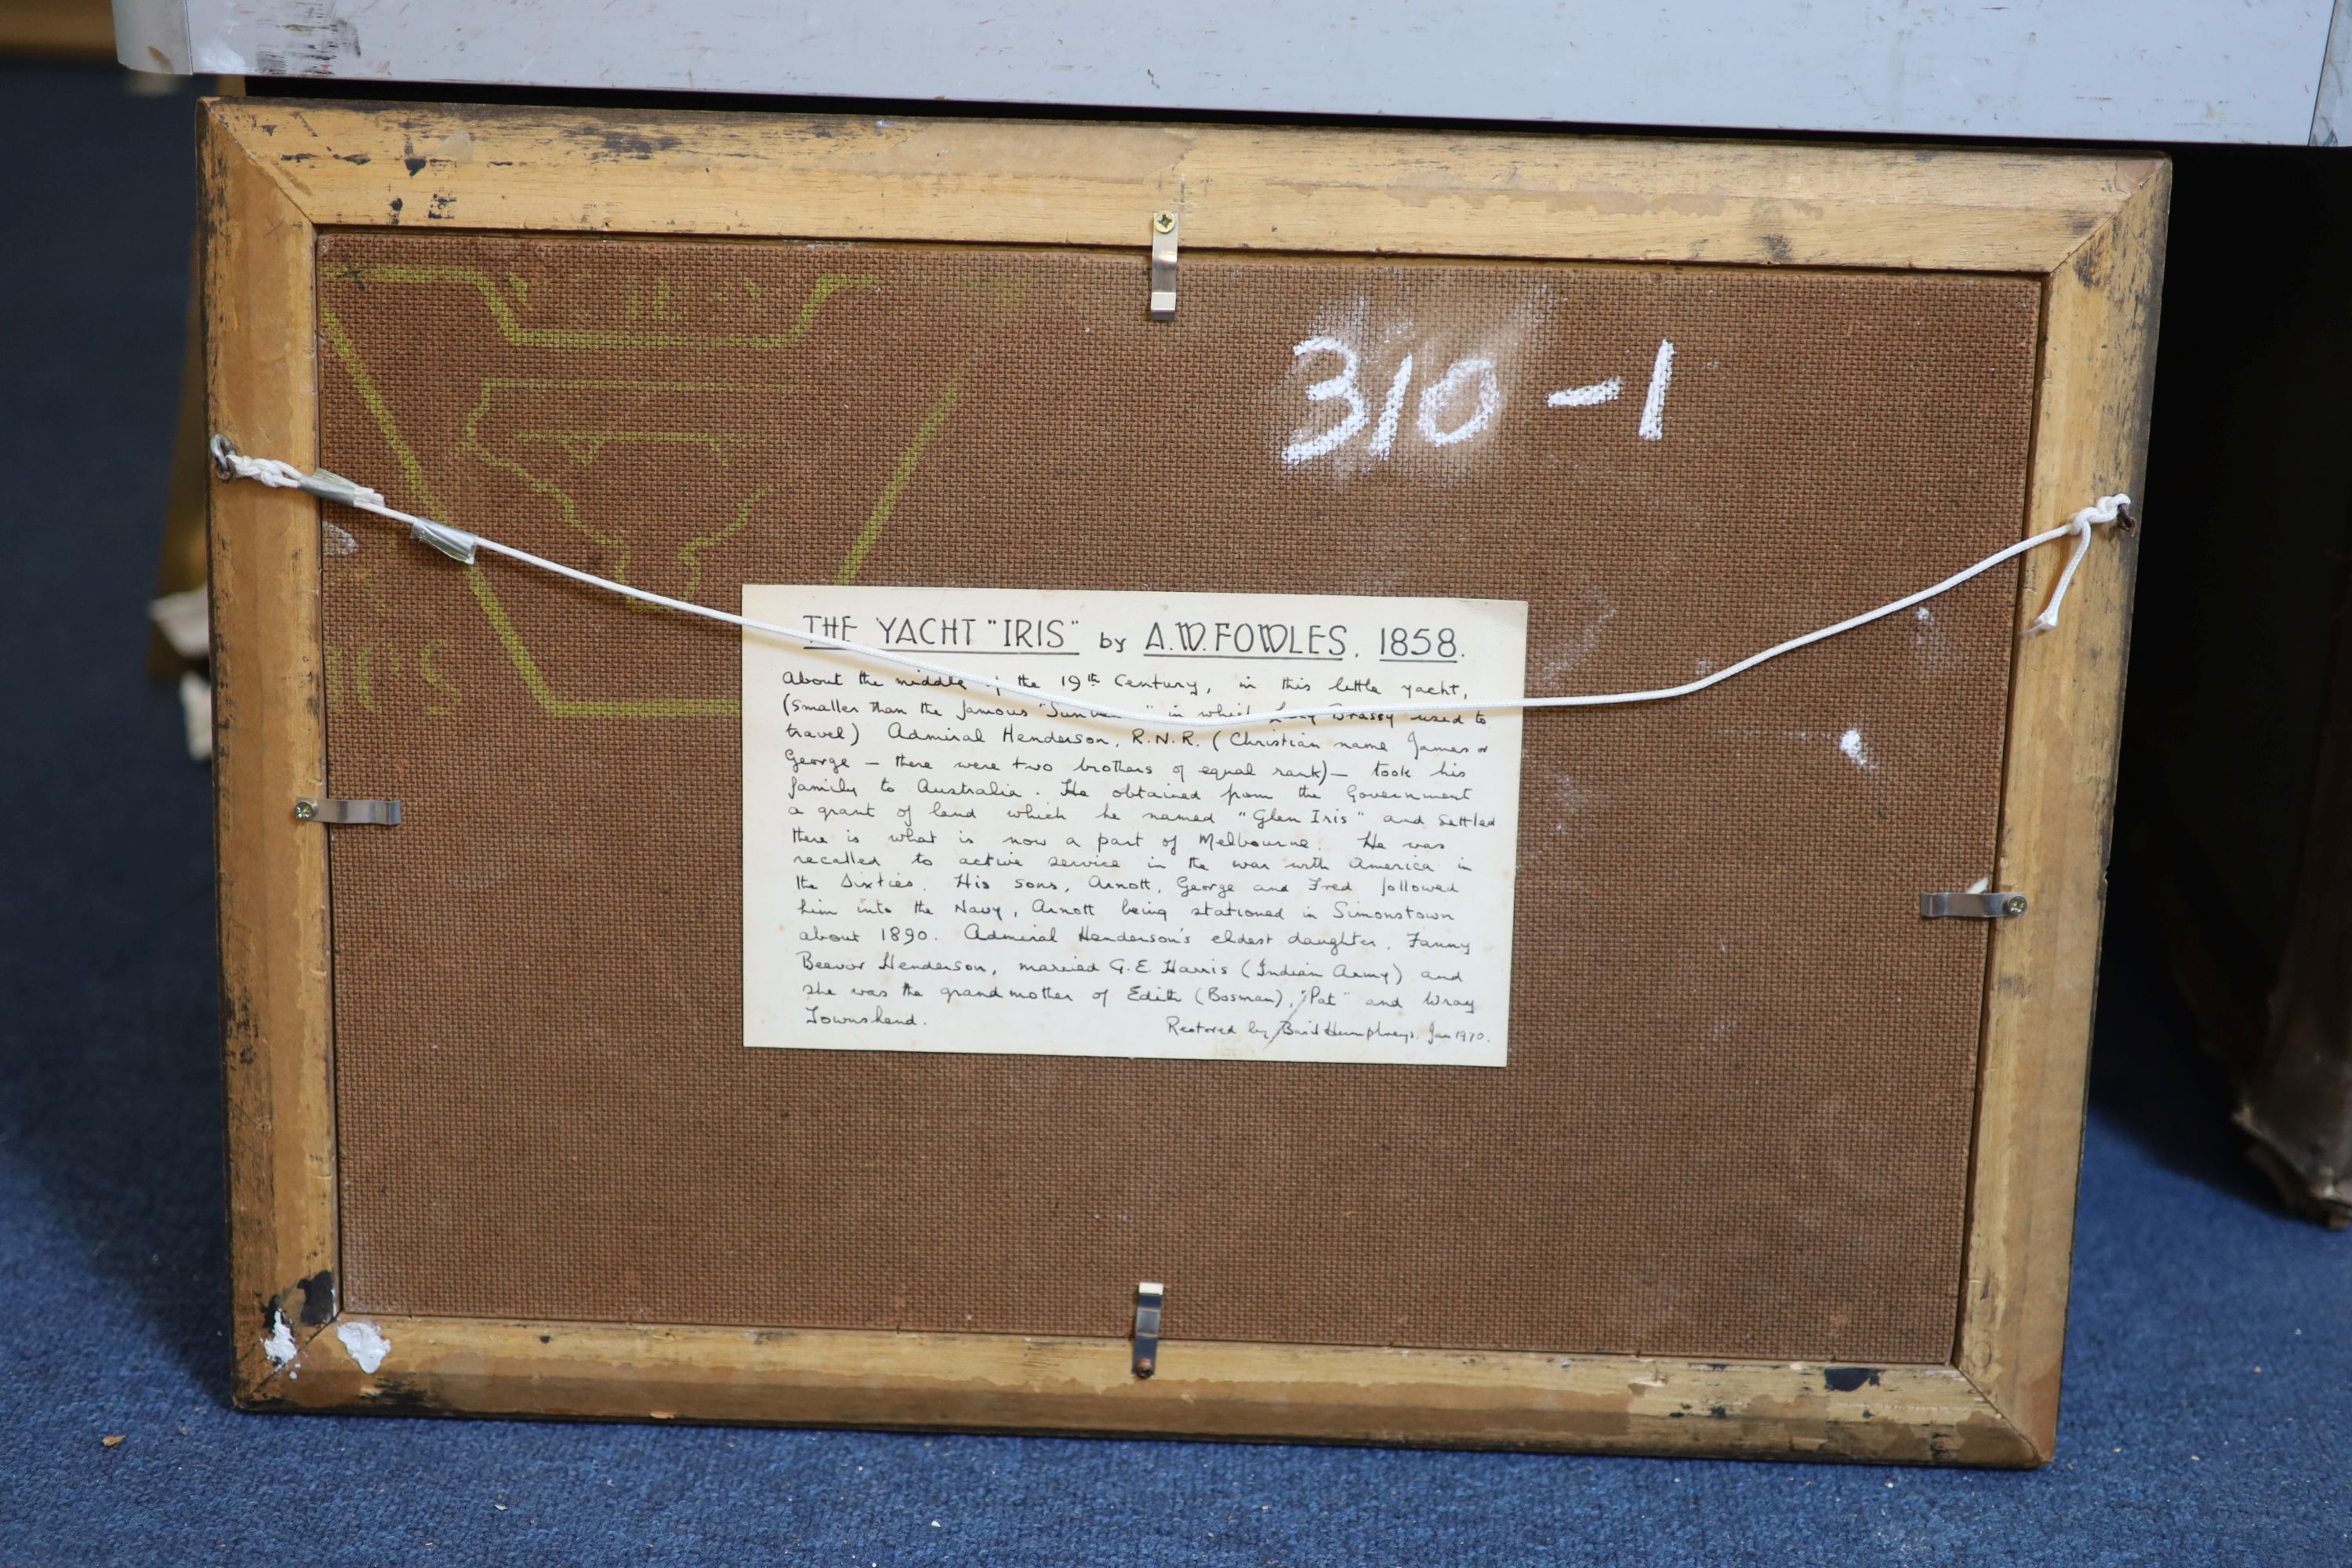 310-1
THE YACHT "IRIS" by A.W. FOWLES, 1858.
About the middle of the 19th Century, in this little yacht,
(smaller than the famous " " in which Lady Brassey used to
travel) Admiral Henderson, R.N.R. (Christian name James or
George — there were two brothers of equal rank) — took his
family to Australia. He obtained from the Government
a grant of land which he named "Glen Iris" and settled
there is what is now a part of Melbourne. He was
recalled to active service in the war with America in
the Sixties. His sons, Arnott, George and Fred followed
him into the Navy, Arnott being stationed in Simonstown
about 1890. Admiral Henderson's eldest daughter, Fanny
Beevor Henderson, married G.E. Harris (Indian Army) and
she was the grandmother of Edith (Bosman), "Pat" and Wray
Townshend.
Restored by Humphreys, Jan 1970.